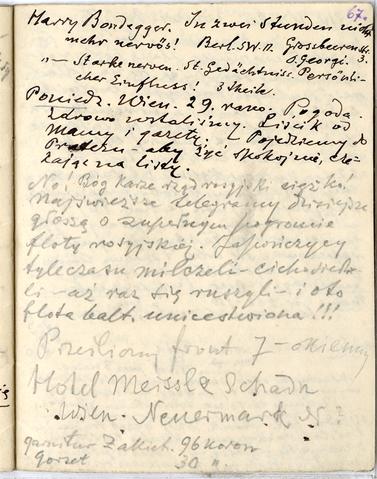 67.
Harry Bondegger. In zwei Stunden nicht
mehr nervös! Berl. S.W. 11. Grossbeerenstr.
D. Georgi. 3.
"— Starke Nerven. St. Gedächtniss. Persönli-
cher Einfluss! 3 Theile.
Poniedz. Wien. 29. rano. Pogoda.
Zdrowo wstaliśmy. Liścik od
Mamy i gazety. Pojedziemy do
Prateru – aby żyć spokojnie, cze-
kając na listy.
No! Bóg karze rząd rosyjski ciężko!
Najświeższe telegramy dzisiejsze
głoszą o zupełnym pogromie
floty rosyjskiej. Japończycy
tyle czasu milczeli – cicho siedzie-
li – aż raz się ruszyli – i oto
flota balt. unicestwiona!!!
front 7 – okienny
Hotel Meissl & Schadn
Wien. Neuermarkt
garnitur Zakiet. 96 koron
gorset 30 "